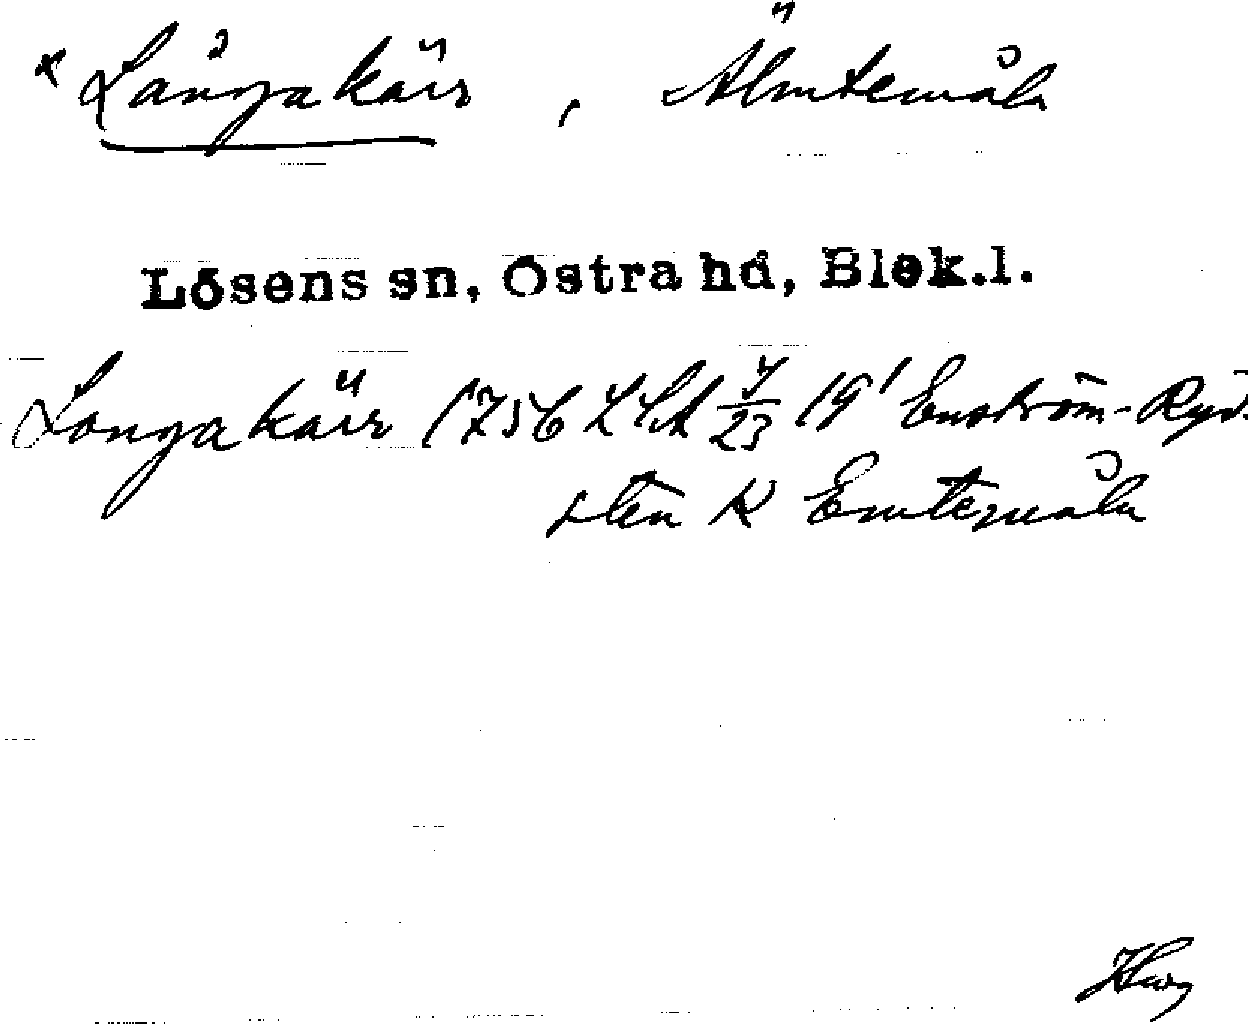 * Långakärr, Älmtemåla
Lösens sn, Östra hd, Blek.l.
Longakärr 1756 LSA 7/23 19' Enström-Ryd-
sten K Emtemåla